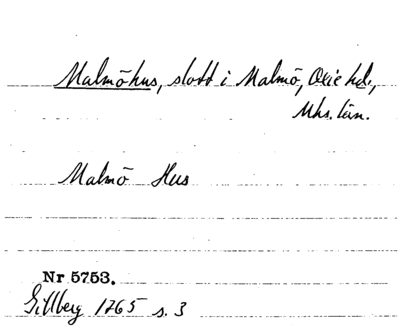 Malmöhus, slott i Malmö, Oxie hd.,
Mhs. län.
Malmö Hus
Nr 5753.
Gillberg 1765 s. 3